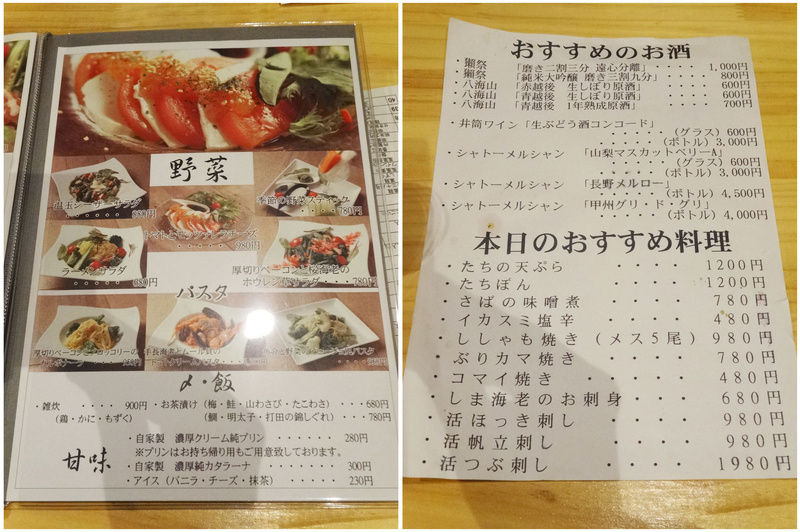 野菜
温玉シーザーサラダ
・・・・・ 680円
トマトとモッツァレラチーズ
・・・・・・ 980円
季節の野菜スティック
・・・・・・ 780円
ラーメンサラダ
・・・・・・ 680円
厚切りベーコンと桜海老の
ホウレン草サラダ・・・・780円
パスタ
厚切りベーコンとブロッコリーの
カルボナーラ
手長海老とムール貝の
トマトクリームパスタ
〆・飯
・雑炊 ・・・・ 900円
(鶏・かに・もずく)
・お茶漬け (梅・鮭・山わさび・たこわさ) ・・・680円
(鯛・明太子・打田の錦しぐれ) ・・・780円
甘味
・自家製 濃厚クリーム純プリン ・・・・・・ 280円
※プリンはお持ち帰り用もご用意致しております。
・自家製 濃厚純カタラーナ ・・・・・・ 300円
・アイス (バニラ・チーズ・抹茶) ・・・・・ 230円
おすすめのお酒
・獺祭 「磨き二割三分 遠心分離」・・・・ 1,000円
・獺祭 「純米大吟醸 磨き三割九分」・・・・ 800円
・八海山 「赤越後 生しぼり原酒」・・・・ 600円
・八海山 「青越後 生しぼり原酒」・・・・ 600円
・八海山 「青越後 1年熟成原酒」・・・・ 700円
・井筒ワイン「生ぶどう酒コンコード」
・・・・・ (グラス) 600円
・・・・・ (ボトル) 3,000円
・シャトーメルシャン 「山梨マスカットベリーA」
・・・・・ (グラス) 600円
・・・・・ (ボトル) 3,000円
・シャトーメルシャン 「長野メルロー」
・・・・・ (ボトル) 4,500円
・シャトーメルシャン 「甲州グリ・ド・グリ」
・・・・・ (ボトル) 4,000円
本日のおすすめ料理
・たちの天ぷら ・・・・ 1200円
・たちぽん ・・・・ 1200円
・さばの味噌煮 ・・・・ 780円
・イカスミ塩辛 ・・・・ 480円
・ししゃも焼き (メス5尾) 980円
・ぶりカマ焼き ・・・・ 780円
・コマイ焼き ・・・・・ 480円
・しま海老のお刺身 ・・・・ 680円
・活ほっき刺し ・・・・ 980円
・活帆立刺し ・・・・ 980円
・活つぶ刺し ・・・・ 1980円